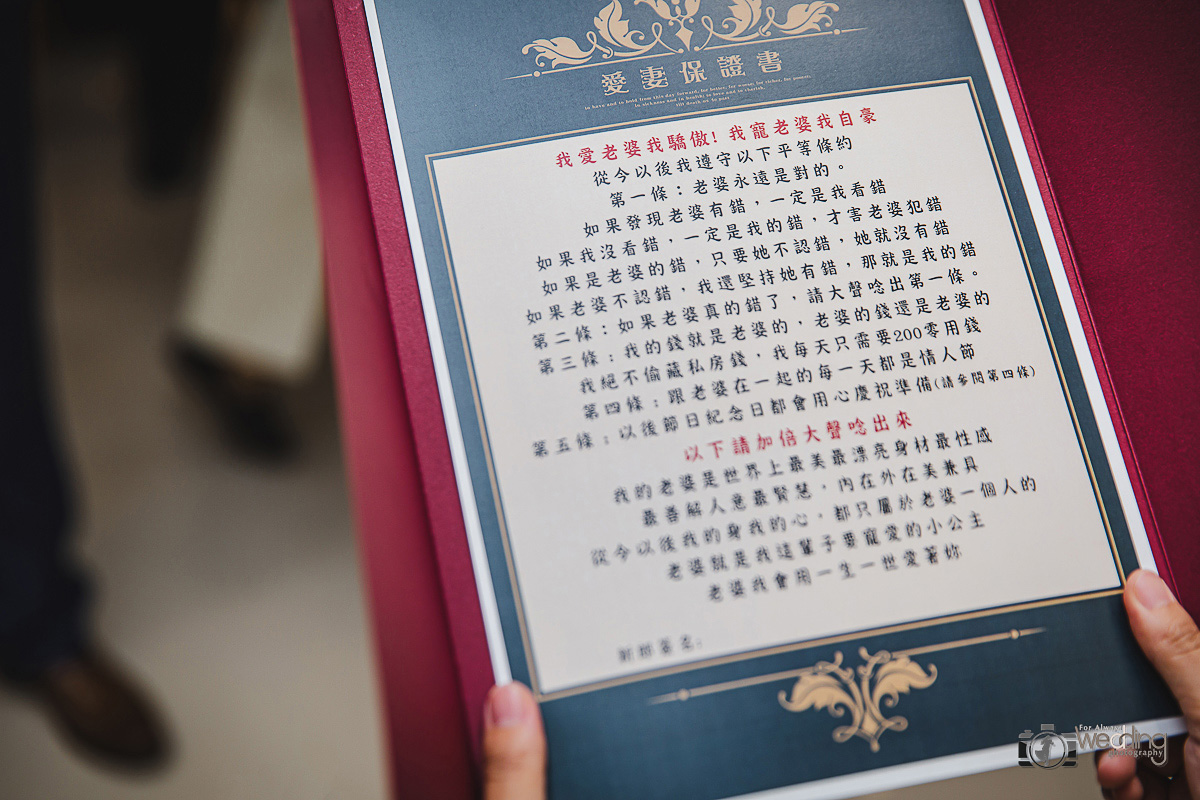 愛妻保證書
to have and to hold from this day forward, for better, for worse, for richer, for poorer,
in sickness and in health, to love and to cherish,
till death us do part
我愛老婆我驕傲! 我寵老婆我自豪
從今以後我遵守以下平等條約
第一條：老婆永遠是對的。
如果發現老婆有錯，一定是我看錯
如果我沒看錯，一定是我的錯，才害老婆犯錯
如果是老婆的錯，只要她不認錯，她就沒有錯
如果老婆不認錯，我還堅持她有錯，那就是我的錯
第二條：如果老婆真的錯了，請大聲唸出第一條。
第三條：我的錢就是老婆的，老婆的錢還是老婆的
我絕不偷藏私房錢，我每天只需要200零用錢
第四條：跟老婆在一起的每一天都是情人節
第五條：以後節日紀念日都會用心慶祝準備(請參閱第四條)
以下請加倍大聲唸出來
我的老婆是世界上最美最漂亮身材最性感
最善解人意最賢慧，內在外在美兼具
從今以後我的身我的心，都只屬於老婆一個人的
老婆就是我這輩子要寵愛的小公主
老婆我會用一生一世愛著妳
新郎簽名：
For Always
wedding
photography